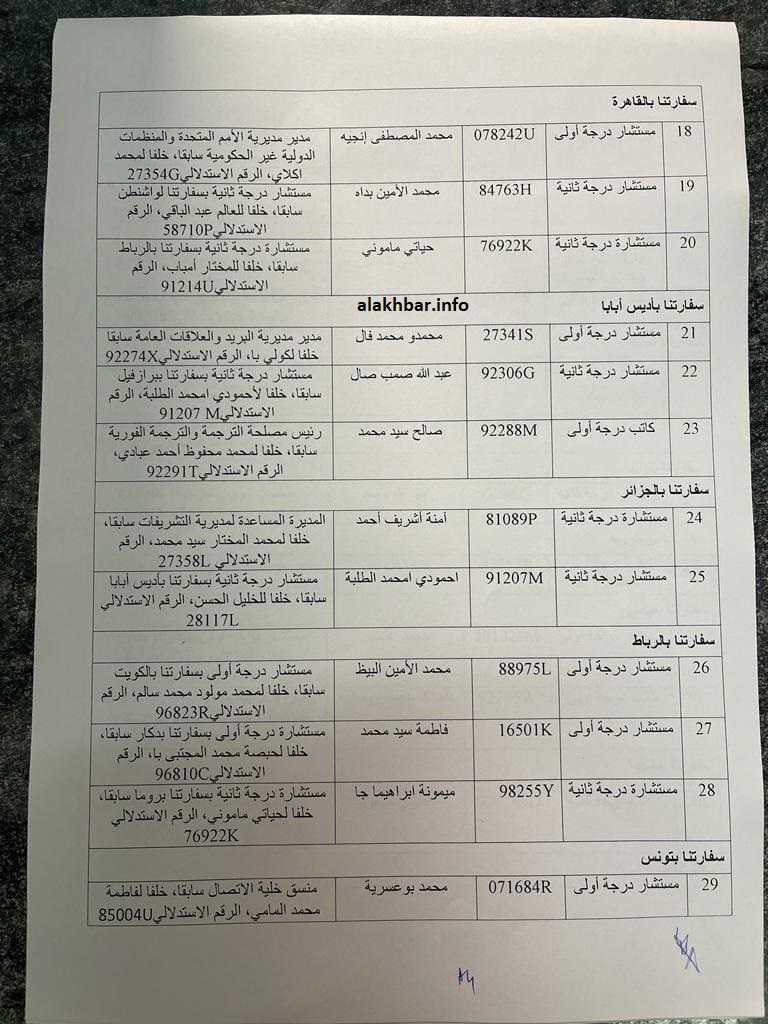 سفارتنا بالقاهرة
18 مستشار درجة أولى 078242U محمد المصطفى إنجيه مدير مديرية الأمم المتحدة والمنظمات
الدولية غير الحكومية سابقا، خلفا لمحمد
اكلاي، الرقم الاستدلالي27354G
19 مستشار درجة ثانية 84763H محمد الأمين بداه مستشار درجة ثانية بسفارتنا لواشنطن
سابقا، خلفا للعالم عبد الباقي، الرقم
الاستدلالي58710P
20 مستشارة درجة ثانية 76922K حياتي ماموني مستشارة درجة ثانية بسفارتنا بالرباط
سابقا، خلفا للمختار أمباب، الرقم
الاستدلالي91214U
alakhbar.info
سفارتنا بأديس أبابا
21 مستشار درجة أولى 27341S محمدو محمد فال مدير مديرية البريد والعلاقات العامة سابقا
خلفا لكولي با، الرقم الاستدلالي92274X
22 مستشار درجة ثانية 92306G عبد الله صمب صال مستشار درجة ثانية بسفارتنا ببرازفيل
سابقا، خلفا لأحمودي امحمد الطلبة، الرقم
الاستدلالي91207 M
23 كاتب درجة أولى 92288M صالح سيد محمد رئيس مصلحة الترجمة والترجمة الفورية
سابقا، خلفا لمحمد محفوظ أحمد عبادي،
الرقم الاستدلالي92291T
سفارتنا بالجزائر
24 مستشارة درجة ثانية 81089P آمنة أشريف أحمد المديرة المساعدة لمديرية التشريفات سابقا،
خلفا لمحمد المختار سيد محمد، الرقم
الاستدلالي 27358L
25 مستشار درجة ثانية 91207M احمودي امحمد الطلبة مستشار درجة ثانية بسفارتنا بأديس أبابا
سابقا، خلفا للخليل الحسن، الرقم الاستدلالي
28117L
سفارتنا بالرباط
26 مستشار درجة أولى 88975L محمد الأمين البيظ مستشار درجة أولى بسفارتنا بالكويت
سابقا، خلفا لمحمد مولود محمد سالم، الرقم
الاستدلالي96823R
27 مستشار درجة أولى 16501K فاطمة سيد محمد مستشارة درجة أولى بسفارتنا بدكار سابقا،
خلفا لحبصة محمد المجتبى با، الرقم
الاستدلالي96810C
28 مستشارة درجة ثانية 98255Y ميمونة ابراهيما جا مستشارة درجة ثانية بسفارتنا بروما سابقا،
خلفا لحياتي ماموني، الرقم الاستدلالي
76922K
سفارتنا بتونس
29 مستشار درجة أولى 071684R محمد بوعسرية منسق خلية الاتصال سابقا، خلفا لفاطمة
محمد المامي، الرقم الاستدلالي85004U